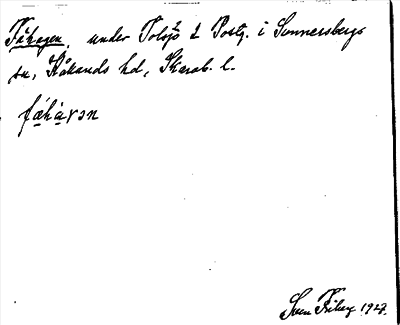 Fähagen, under Tolsjö 2 Postg. i Sunnersbergs
sn, Kåkands hd, Skarab. l.
fæ̀hàɤən
Sven Friberg 1927.